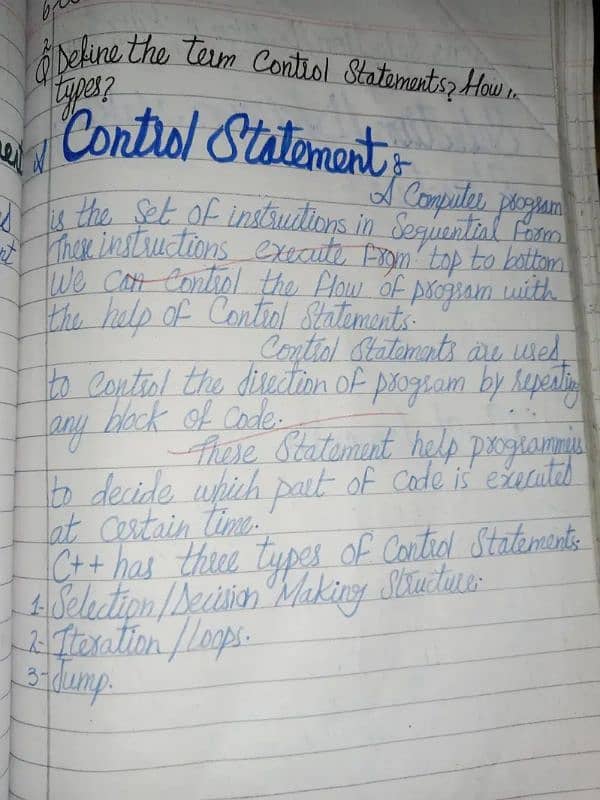 Q Define the term Control Statements? How
types?
Control Statement :-
A Computer program
is the set of instructions in Sequential Form
These instructions execute from top to bottom
We Can Control the flow of program with
the help of Control Statements.
Control Statements are used
to Control the direction of program by repeating
any block of Code.
These Statement help programmers
to decide which part of Code is executed
at Certain time.
C++ has three types of Control Statements.
1- Selection/Decision Making Structure.
2- Iteration/Loops.
3- Jump.